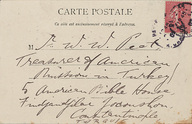 CARTE POSTALE
Ce côté est exclusivement réservé à l'adresse.
W. W. Peet
Treasurer of American
Mission in Turkey
American Bible House
Constantinople